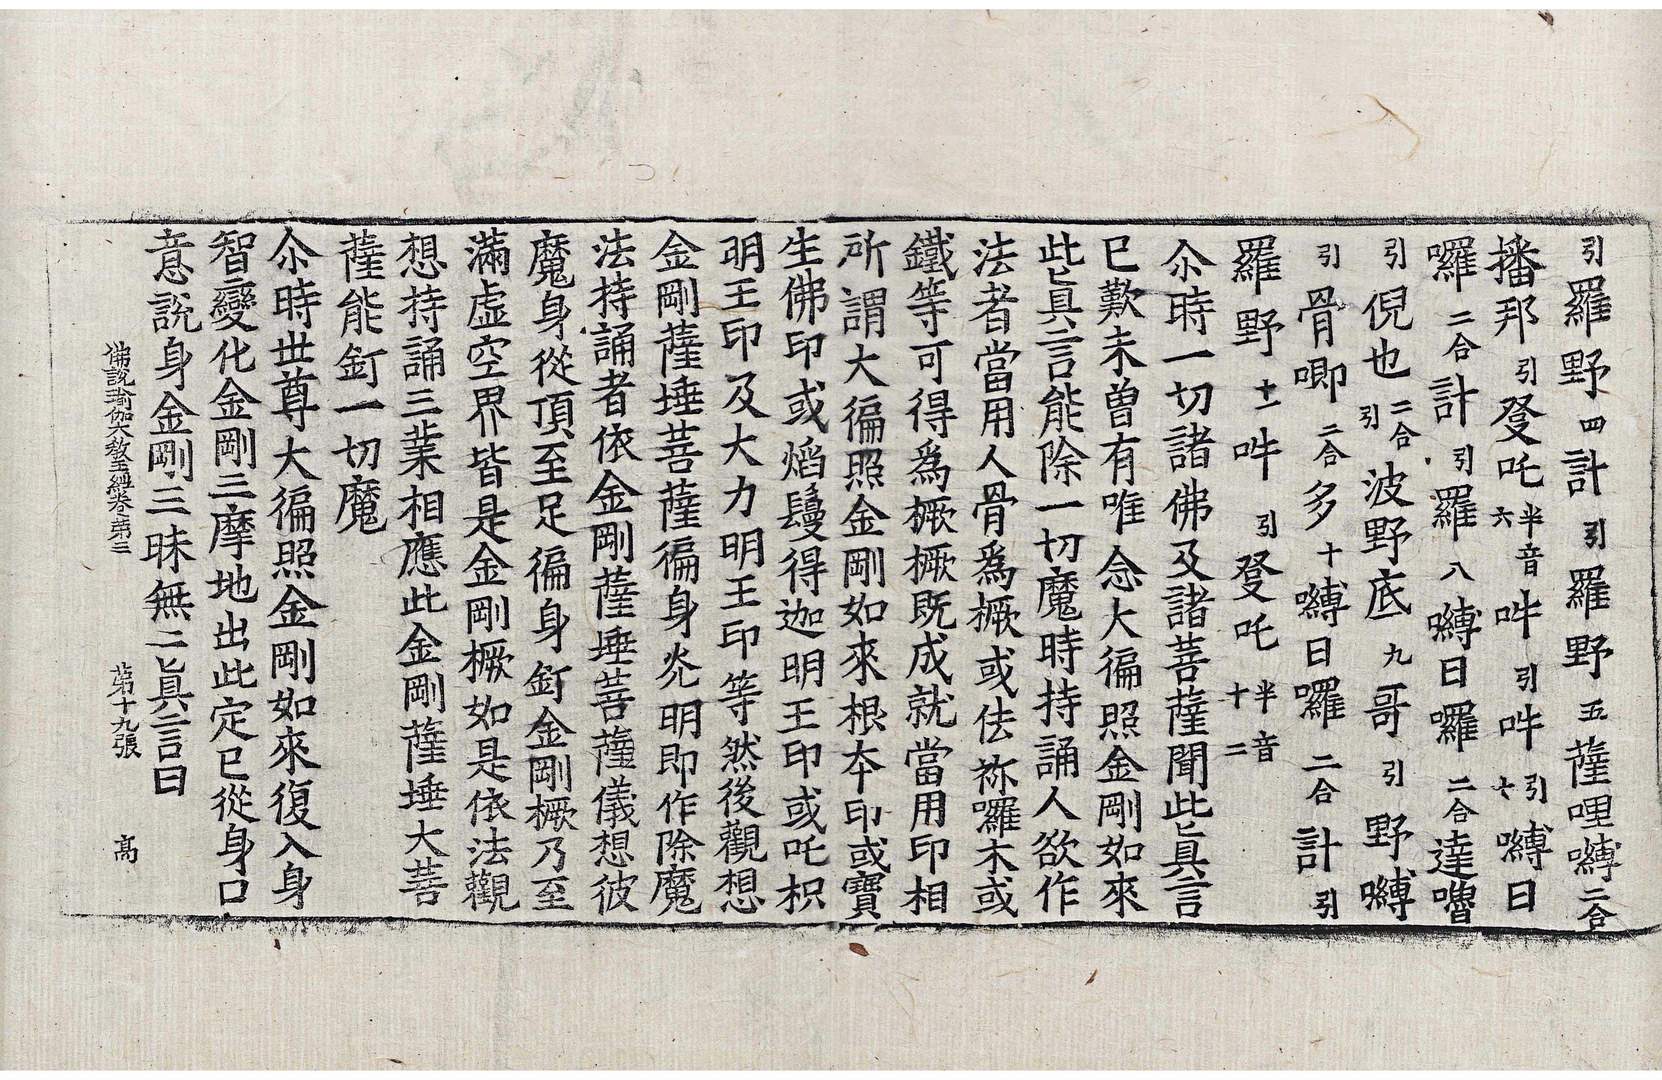 引羅野四計引羅野五薩哩嚩二合
播邦引癹吒半音六吽引吽引七嚩日
囉二合計引羅八嚩日囉二合達嚕
引倪也二合引波野底九哥引野嚩
引骨唧二合多十嚩日囉二合計引
羅野十一吽引癹吒半音十二
尒時一切諸佛及諸菩薩聞此真言
已歎未曾有唯念大徧照金剛如來
此真言能除一切魔時持誦人欲作
法者當用人骨爲橛或佉祢囉木或
鐵等可得爲橛橛既成就當用印相
所謂大徧照金剛如來根本印或寶
生佛印或熖鬘得迦明王印或吒枳
明王印及大力明王印等然後觀想
金剛薩埵菩薩徧身炎明即作除魔
法持誦者依金剛薩埵菩薩儀想彼
魔身從頂至足徧身釘金剛橛乃至
滿虛空界皆是金剛橛如是依法觀
想持誦三業相應此金剛薩埵大菩
薩能釘一切魔
尒時世尊大徧照金剛如來復入身
智變化金剛三摩地出此定已從身口
意說身金剛三昧無二真言曰
佛說瑜伽大教王經卷第三　第十九張　高